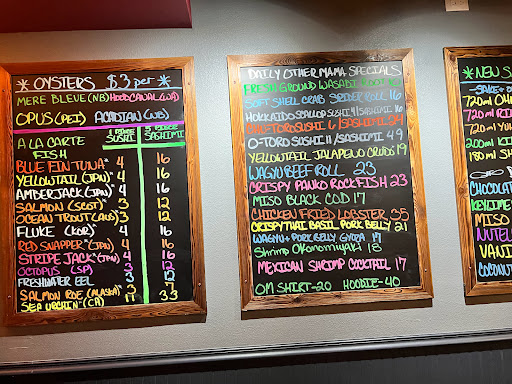 * OYSTERS $3 per *
MERE BLEVE (NB) HOOD CANAL (WA)
OPUS (PEI) ACADIAN (NB)
A LA CARTE FISH
1 PIECE SUSHI
5 PIECE SASHIMI
BLUE FIN TUNA* 4 16
YELLOWTAIL (JPN)* 4 16
AMBERJACK (JPN)* 4 16
SALMON (SCOT)* 3 12
OCEAN TROUT (AUS)* 3 12
FLUKE (KOR)* 4 16
RED SNAPPER* (JPN) 4 16
STRIPE JACK* (JPN) 4 16
OCTOPUS (SP)
FRESHWATER EEL
SALMON ROE (ALASKA)*
SEA URCHIN* (CA) 33
DAILY OTHER MAMA SPECIALS
FRESH GROUND WASABI ROOT
SOFT SHELL CRAB SPIDER ROLL 16
HOKKAIDO SCALLOP SUSHI 4/SASHIMI 16
CHU-TORO SUSHI 6/SASHIMI 24
O-TORO SUSHI 11/SASHIMI 49
YELLOWTAIL JALAPEÑO CRUDO 19
WAGYU BEEF ROLL 23
CRISPY PANKO ROCKFISH 23
MISO BLACK COD 17
CHICKEN FRIED LOBSTER 35
CRISPY THAI BASIL PORK BELLY 21
WAGYU + PORK BELLY GYOZA 17
Shrimp Okonomiyaki 15
MEXICAN SHRIMP COCKTAIL 17
OM SHIRT-20 HOODIE-40
* NEW S
-SAKE-
720ml
720ml
720ml
200ml
180ml
CHOCOLAT
KEYLIME
MISO
NUTELL
VANI
COCONUT